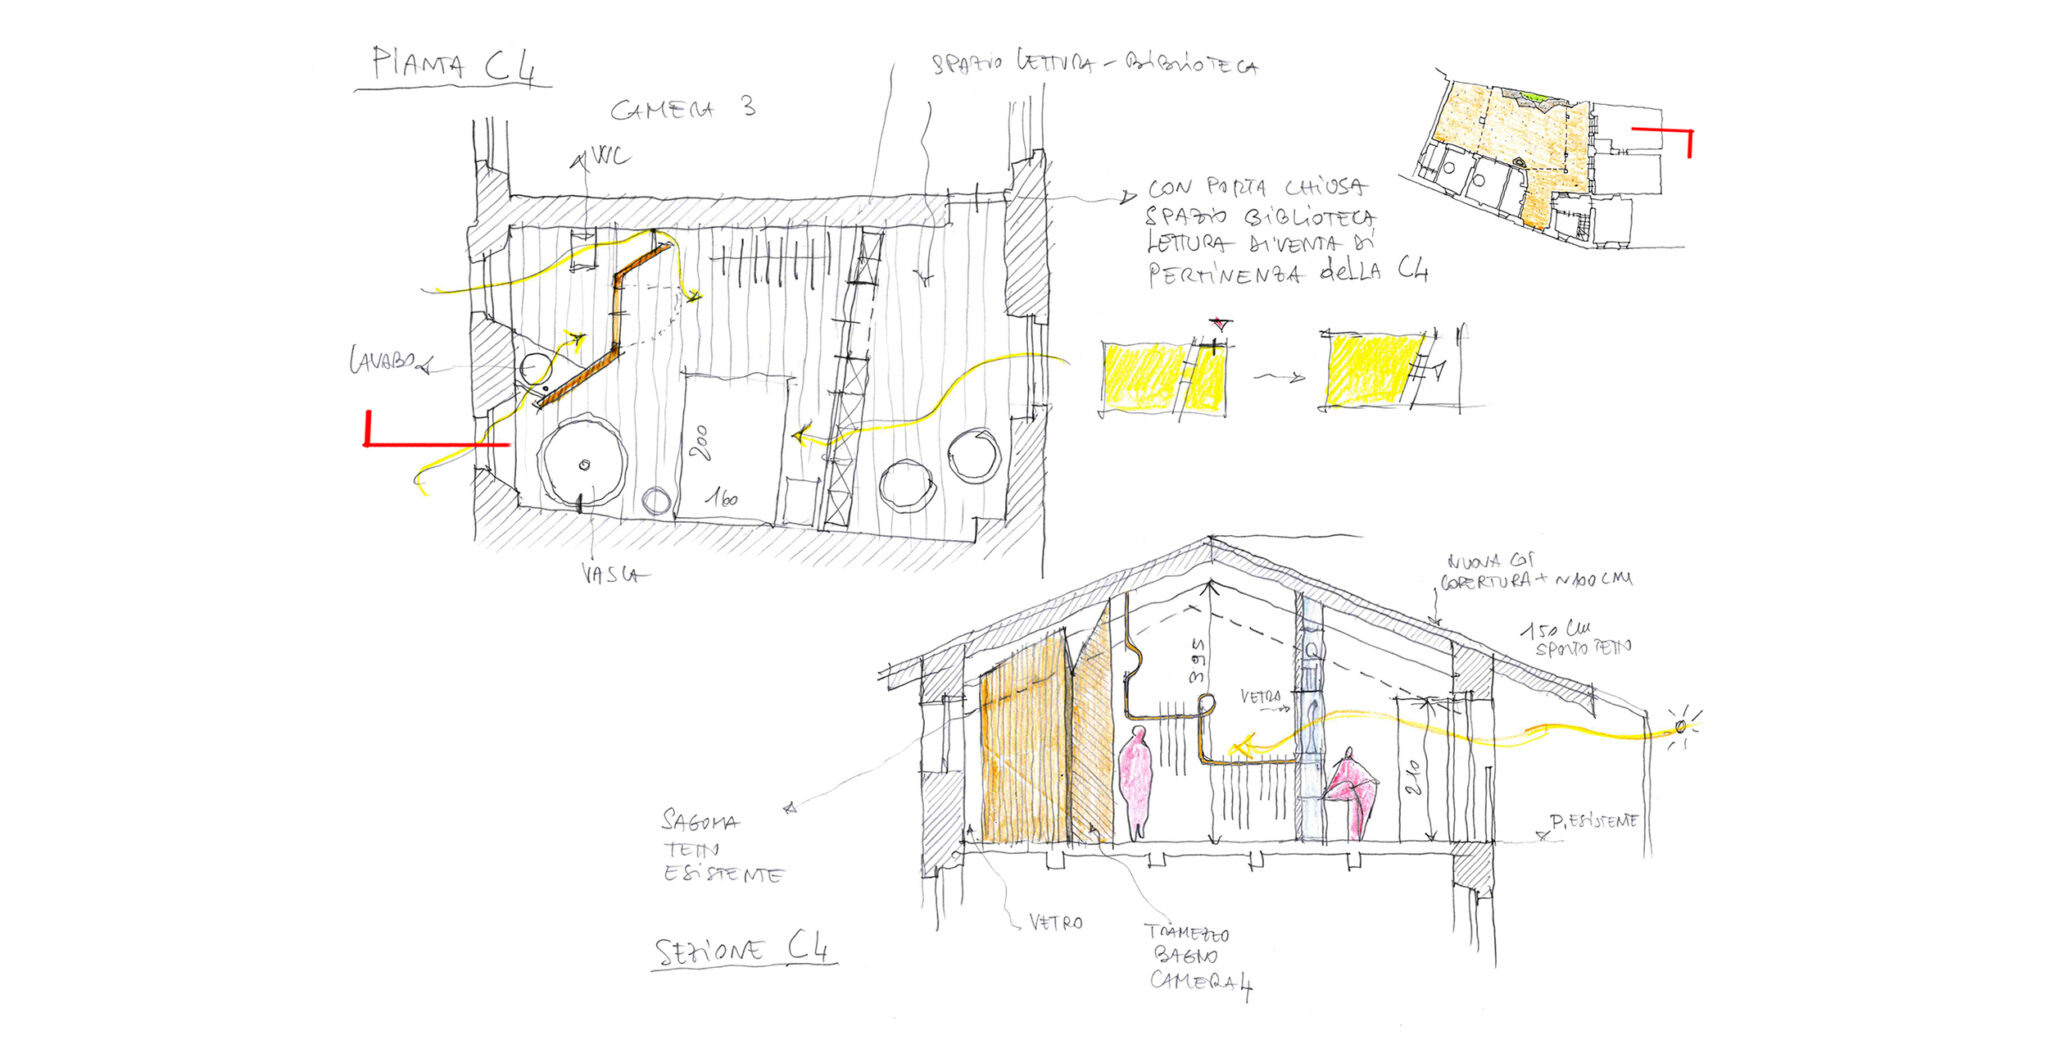 PIANTA C4
SPAZIO LETTURA - BIBLIOTECA
CAMERA 3
WC
CON PORTA CHIUSA
SPAZIO BIBLIOTECA
LETTURA DIVENTA DI
PERTINENZA DELLA C4
LAVABO
200
160
VASCA
NUOVA
COPERTURA + 100 CM
150 CM
SPORTO TETTO
395
VETRO
210
P. ESISTENTE
SAGOMA
TETTO
ESISTENTE
VETRO
TRAMEZZO
BAGNO
CAMERA 4
SEZIONE C4